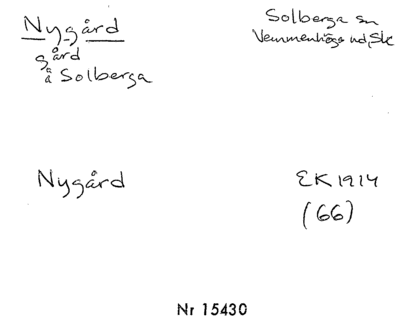 Nygård
gård
å Solberga
Solberga sn
Vemmenhögs hd, Sk
Nygård
EK 1914
(66)
Nr 15430